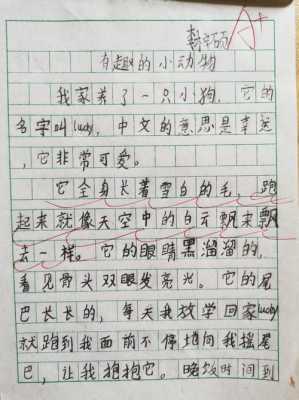 A+
有趣的小动物
我家养了一只小狗，它的
名字叫lucky，中文的意思是幸运
，它非常可爱。
它全身长着雪白的毛，跑
起来就像天空中的白云飘来飘
去一样。它的眼睛黑溜溜的，
看见骨头双眼发亮光。它的尾
巴长长的，每天我放学回家lucky
就跑到我面前不停地向我摇尾
巴，让我抱抱它。晚饭时间到